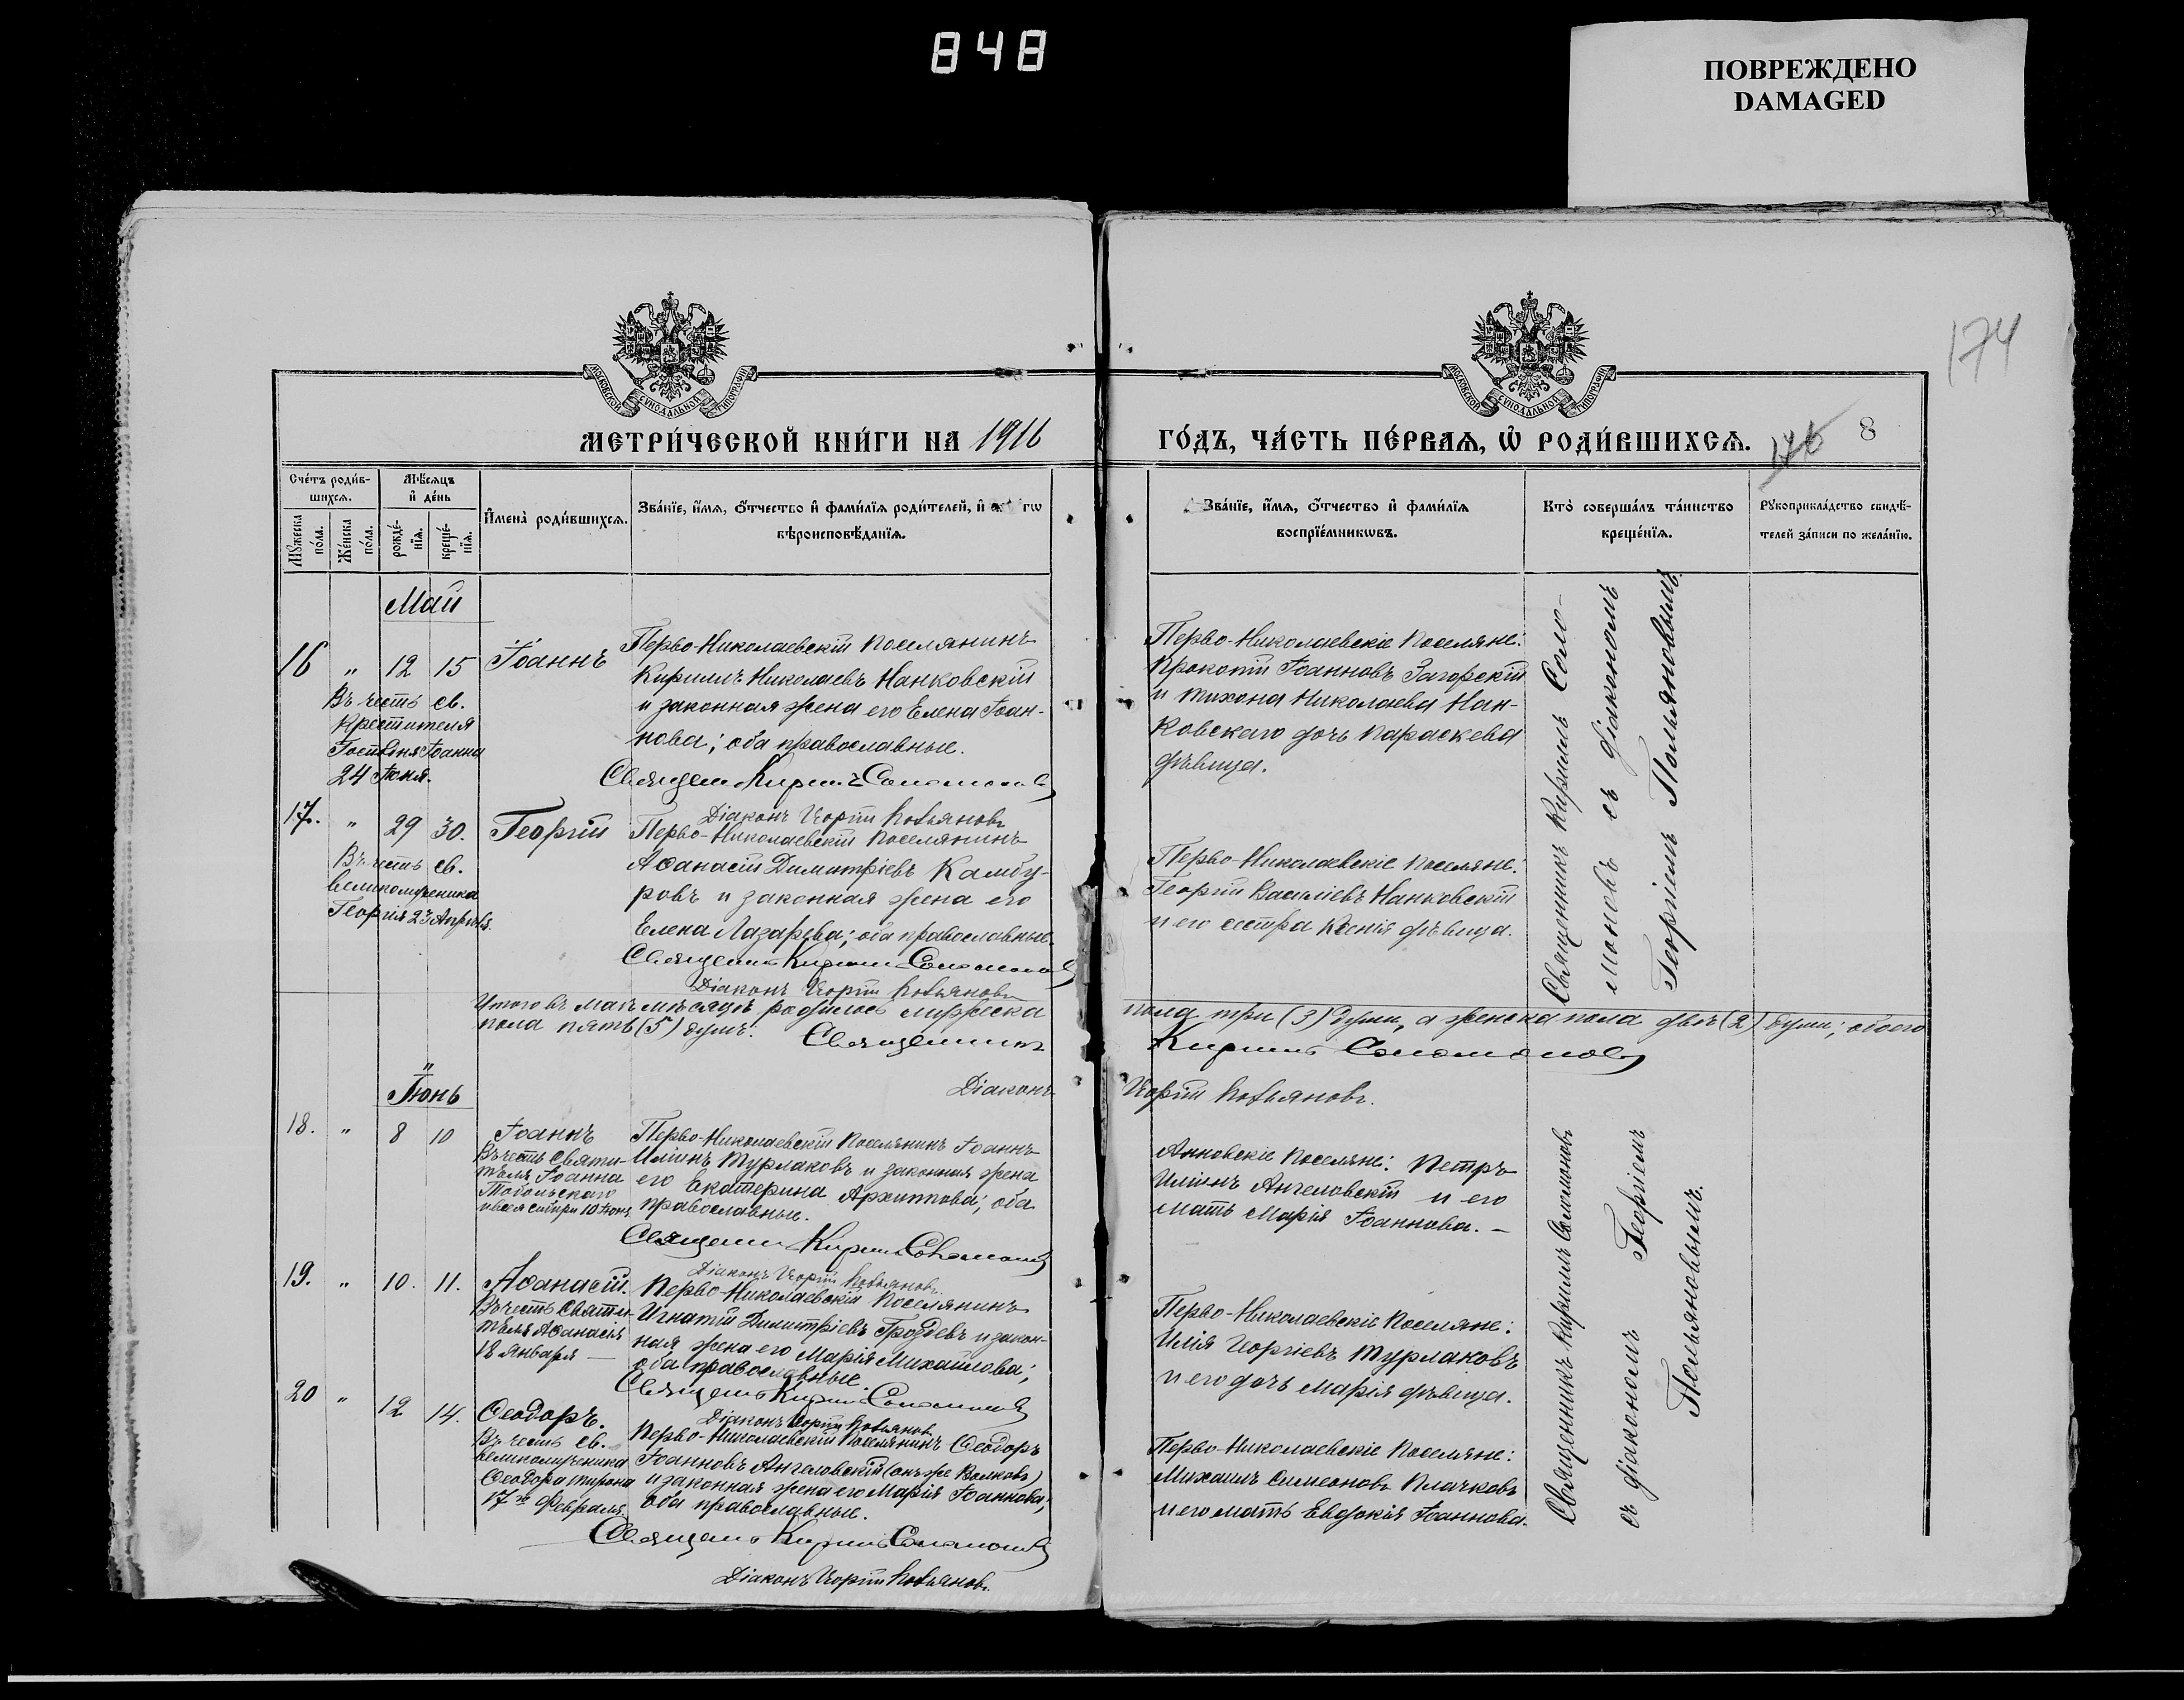 848
ПОВРЕЖДЕНО
DAMAGED
174
МОСКОВСКОЙ СѴНОДАЛЬНОЙ ТИПОГРАФІИ
МОСКОВСКОЙ СѴНОДАЛЬНОЙ ТИПОГРАФІИ
МЕТРИ́ЧЕСКОЙ КНИ́ГИ НА 1916
ГО́ДЪ, ЧА́СТЬ ПЕ́РВАѦ, Ѡ҆ РОДИ́ВШИХСѦ.
8
Сче́тъ роди́в-
шихсѧ.
Мꙋжеска
по́ла.
Же́нска
по́ла.
Мѣ́сѧцъ
и҆ де́нь
рожде́-
нїѧ.
креще́-
нїѧ.
И҆мена̀ роди́вшихсѧ.
Зва́нїе, и҆́мѧ, ѻ҆́тчество и҆ фами́лїѧ роди́телей, и҆
вѣроисповѣ́данїѧ.
Зва́нїе, и҆́мѧ, ѻ҆́тчество и҆ фами́лїѧ
воспрїе́мникѡвъ.
Кто̀ соверша́лъ та́инство
креще́нїѧ.
Рꙋкоприкла́дство свидѣ́-
телей за́писи по жела́нїю.
Май
16 " 12 15 Іоаннъ
Въ честь св.
Крестителя
Іоанна
24 Іюня.
Перво-Николаевскій поселянинъ
Кириллъ Николаевъ Нанковскій
и законная жена его Елена Іоан-
нова; оба православные.
Священ. Кириллъ Соломоновъ
Діаконъ Георгій
Перво-Николаевскіе поселяне:
Прокопій Іоанновъ Загорскій
и Тихона Николаева Нан-
ковскаго дочь Параскева
дѣвица.
Священникъ Кириллъ Соло-
моновъ съ діакономъ
Георгіемъ
17. " 29 30. Георгій
Въ честь св.
великомученика
Георгія 23 Апрѣля.
Перво-Николаевскій поселянинъ
Аѳанасій Димитріевъ Камбу-
ровъ и законная жена его
Елена Лазарева; оба православные.
Священ. Кириллъ Соломоновъ
Діаконъ Георгій
Перво-Николаевскіе поселяне:
Георгій Василіевъ Нанковскій
и его сестра Ксенія дѣвица.
Итого въ маѣ мѣсяцѣ родилось мужеска
пола три (3) души, а женска пола двѣ (2) души; обоего
пола пять (5) душъ. Священникъ
Кириллъ Соломоновъ
Діаконъ
Георгій
Іюнь
18. " 8 10 Іоаннъ
Въ честь Святи-
теля Іоанна
Тобольскаго
10 Іюня
Перво-Николаевскій поселянинъ Іоаннъ
Иліинъ Турлаковъ и законная жена
его Екатерина Архиппова; оба
православные.
Священ. Кириллъ Соломоновъ
Діаконъ Георгій
Анновскіе поселяне: Петръ
Иліинъ Ангеловскій и его
мать Марія Іоаннова. –
Священникъ Кириллъ Соломоновъ
съ діакономъ Георгіемъ
19. " 10. 11. Аѳанасій.
Въ честь Святи-
теля Аѳанасія
18 Января –
Перво-Николаевскій поселянинъ
Игнатій Димитріевъ Гроздевъ и закон-
ная жена его Марія Михайлова;
оба православные.
Священ. Кириллъ Соломоновъ
Діаконъ Георгій
Перво-Николаевскіе поселяне:
Илія Георгіевъ Турлаковъ
и его дочь Марія дѣвица.
20 " 12 14. Ѳеодоръ.
Въ честь св.
великомученика
Ѳеодора Тирона
17го Февраля.
Перво-Николаевскій поселянинъ Ѳеодоръ
Іоанновъ Ангеловскій (онъ же Волковъ)
и законная жена его Марія Іоаннова;
оба православные.
Священ. Кириллъ Соломоновъ
Діаконъ Георгій
Перво-Николаевскіе поселяне:
Михаилъ Симеоновъ Плачковъ
и его мать Евдокія Іоаннова.